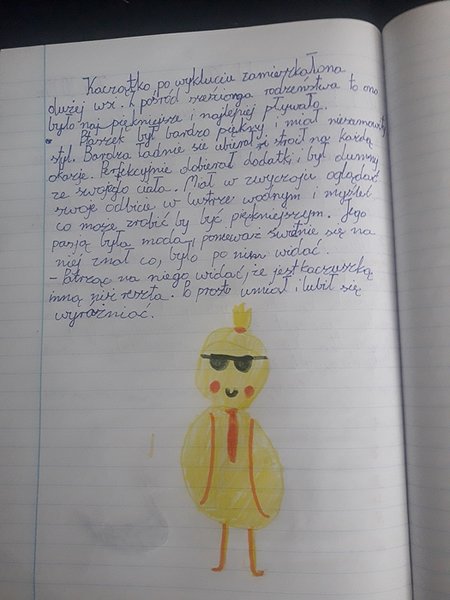 Kaczątko po wykluciu zamieszkałona
dużej wsi. Z pośród sześciorga rodzeństwa to ono
było naj piękniejsze i najlepiej pływało.
Ptaszek był bardzo piękny i miał niesamowity
styl. Bardzo ładnie sie ubierał i stroił na każdą
okazje. Perfekcyjnie dobierał dodatki i był dumny
ze swojego ciała. Miał w zwyczaju oglądać
swoje odbicie w lustrze wodnym i myślał
co może zrobić by być piękniejszym. Jego
pasją była moda, ponieważ świetnie się na
niej znał co, było po nim widać.
- Patrząc na niego widać, że jest kaczuszką
inną niż reszta. Po prostu umiał i lubił się
wyrażniać.